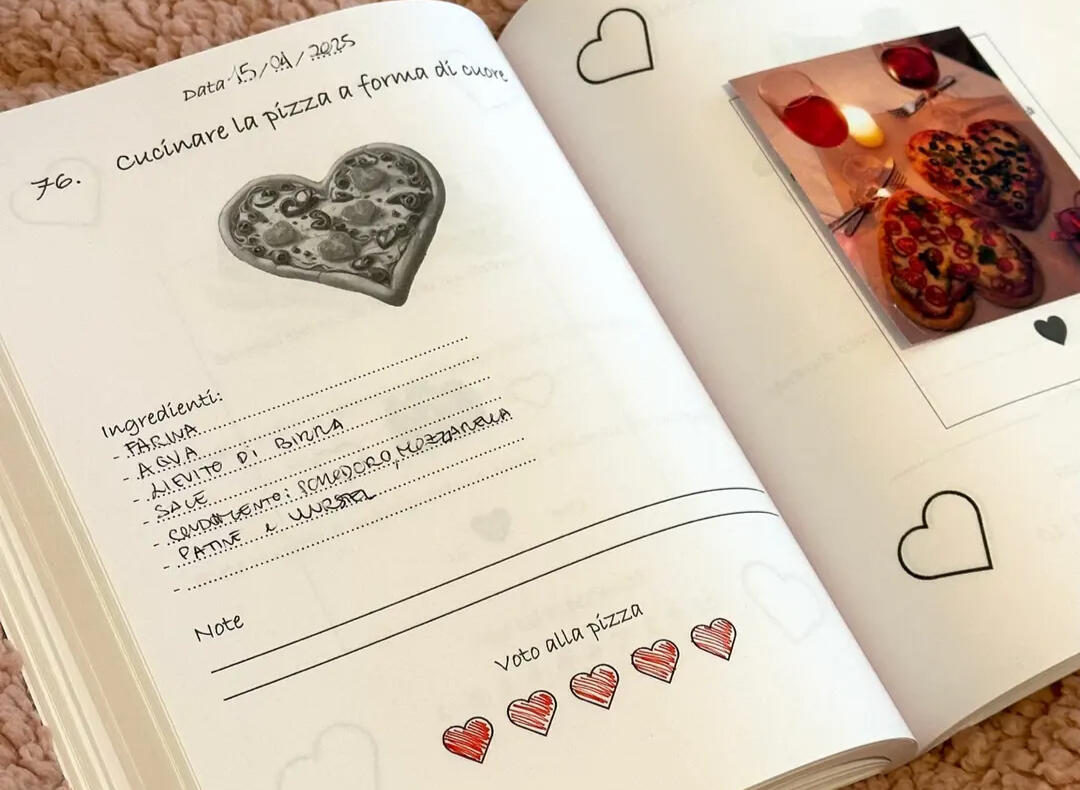 Data 15/04/2025
76. Cucinare la pizza a forma di cuore
Ingredienti:
- FARINA
- AQUA
- LIEVITO DI BIRRA
- SALE
- CONDIMENTO: POMODORO, MOZZARELLA
- PATINE e WURSTEL
-
Note
Voto alla pizza